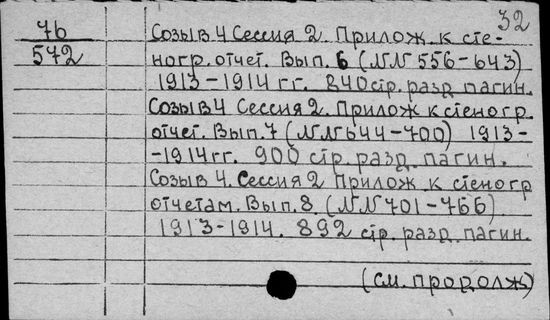 32
7б
572
Созыв 4 Сессия 2. Прилож. к сте-
ногр. отчет. Вып. 6 (NN 556-643)
1913-1914 гг. 840 стр. разд. пагин.
Созыв 4 Сессия 2. Прилож к стеногр.
отчет. Вып. 7 (NN 644-700) 1913-
-1914 гг. 900 стр. разд. пагин.
Созыв 4. Сессия 2 Прилож к стеногр
отчетам. Вып. 8. (NN 701-766)
1913-1914. 892 стр. разд. пагин.
(см. продолж)